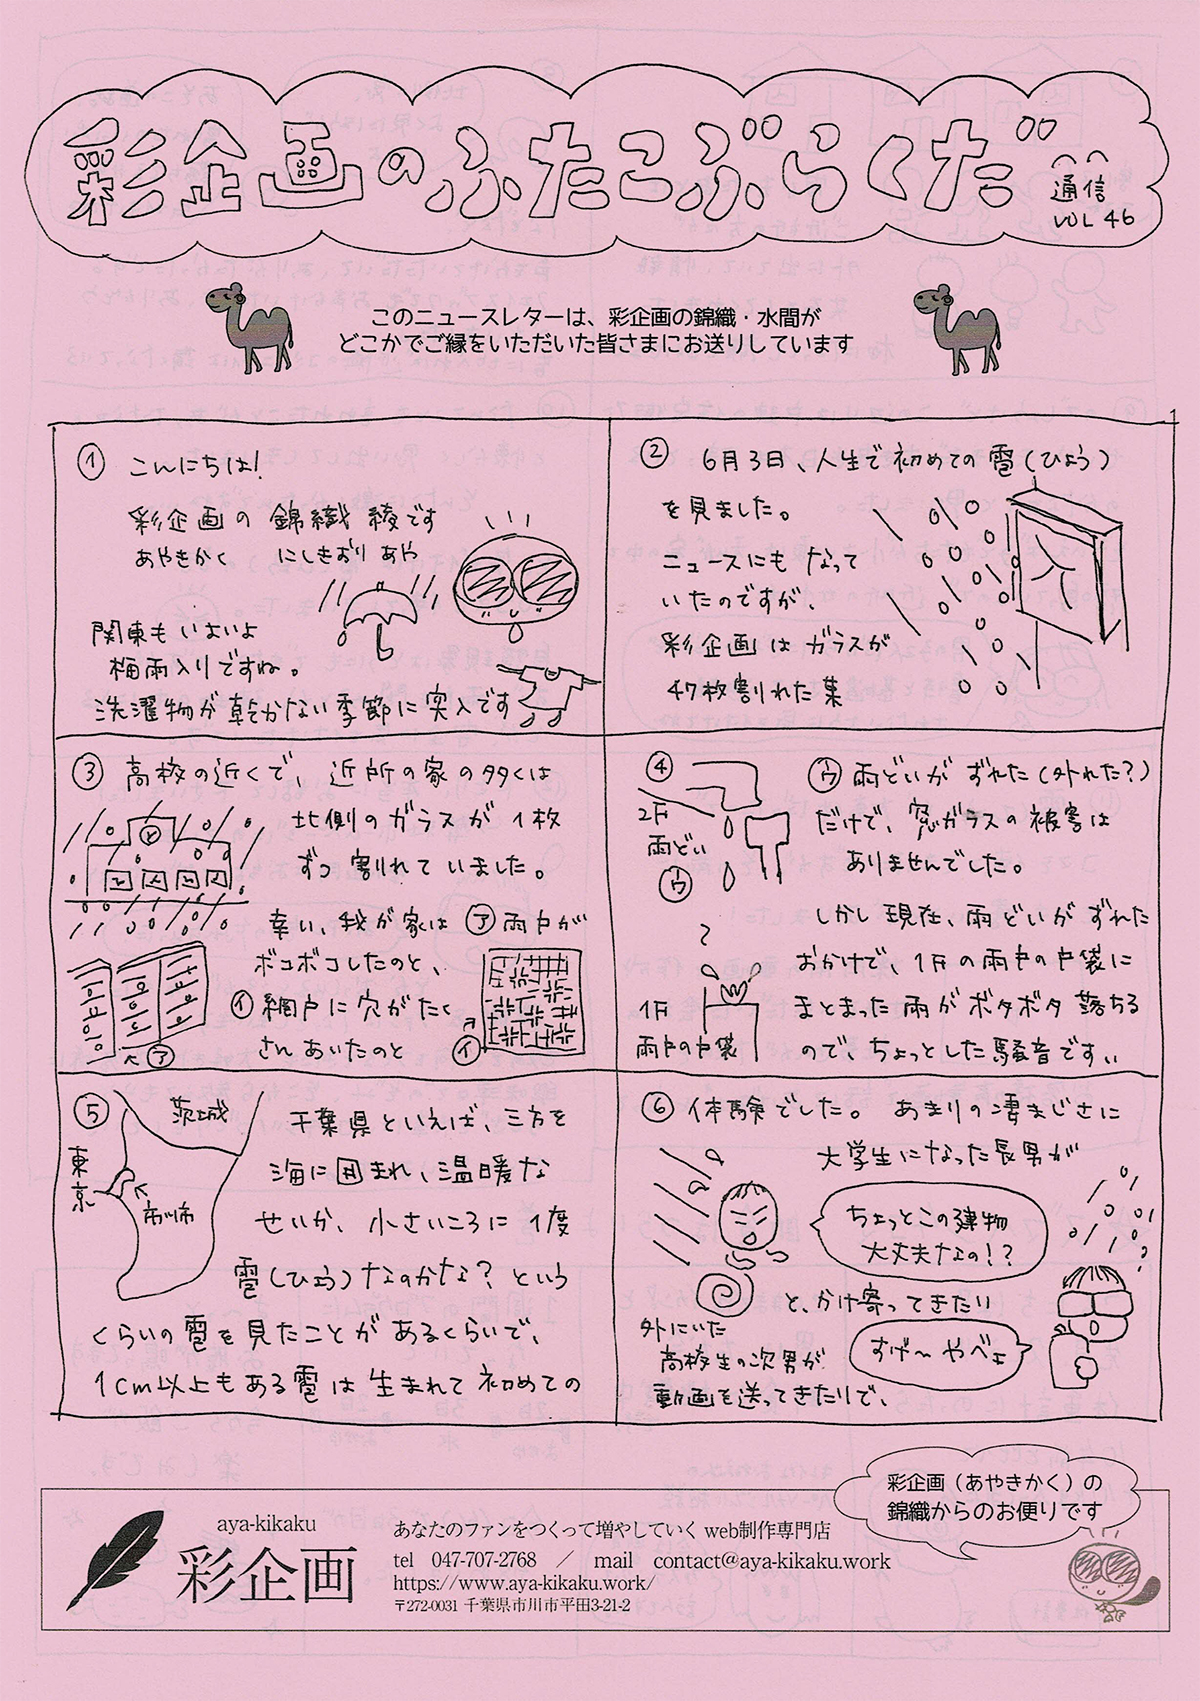 彩企画のふたこぶらくだ
通信
VOL 46
このニュースレターは、彩企画の錦織・水間が
どこかでご縁をいただいた皆さまにお送りしています
① こんにちは!
彩企画の 錦織 綾です
あやきかく にしきおり あや
関東もいよいよ
梅雨入りですね。
洗濯物が乾かない季節に突入です
② 6月3日、人生で初めての雹(ひょう)
を見ました。
ニュースにもなって
いたのですが、
彩企画はガラスが
47枚割れた葉
③ 高校の近くで、近所の家の多くは
北側のガラスが1枚
ずつ割れていました。
幸い、我が家は ㋐雨戸が
ボコボコしたのと、
㋑網戸に穴がたく
さんあいたのと
㋐
㋑
④
2F
雨どい
㋒
㋒雨どいがずれた(外れた?)
だけで、窓ガラスの被害は
ありませんでした。
しかし現在、雨どいがずれた
おかげで、1Fの雨戸の戸袋に
まとまった雨がボタボタ落ちる
ので、ちょっとした騒音です。
1F
雨戸の戸袋
⑤
茨城
東京
市川市
千葉県といえば、三方を
海に囲まれ、温暖な
せいか、小さいころに1度
雹(ひょう)なのかな?という
くらいの雹を見たことがあるくらいで、
1cm以上もある雹は生まれて初めての
⑥ 体験でした。あまりの凄まじさに
大学生になった長男が
ちょっとこの建物
大丈夫なの!?
と、かけ寄ってきたい
外にいた
高校生の次男が
動画を送ってきたりで、
すげ〜やべぇ
彩企画(あやきかく)の
錦織からのお便りです
aya-kikaku
彩企画
あなたのファンをつくって増やしていく web制作専門店
tel 047-707-2768 / mail contact@aya-kikaku.work
https://www.aya-kikaku.work/
〒272-0031 千葉県市川市平田3-21-2